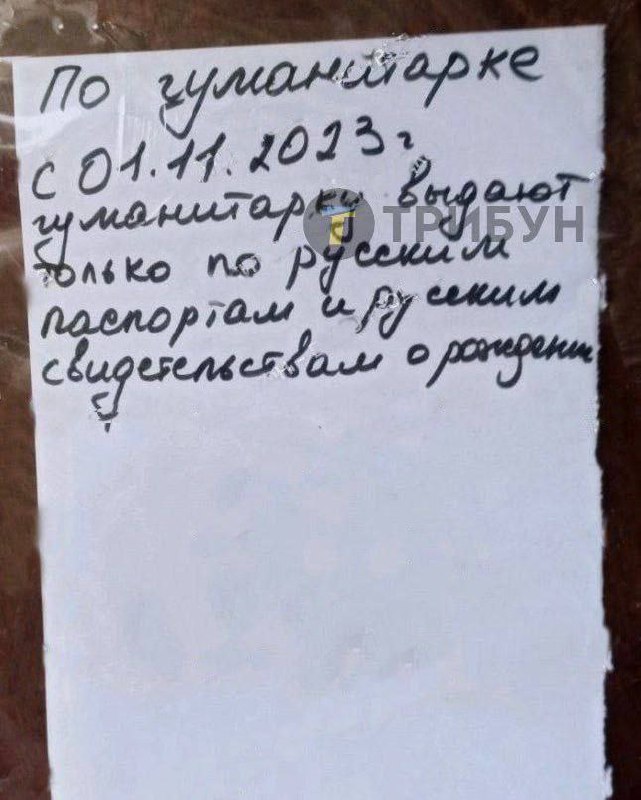 По гуманитарке
с 01.11.2023 г
гуманитарку выдают
ТРИБУН
только по русским
паспортам и русским
свидетельствам о рождении